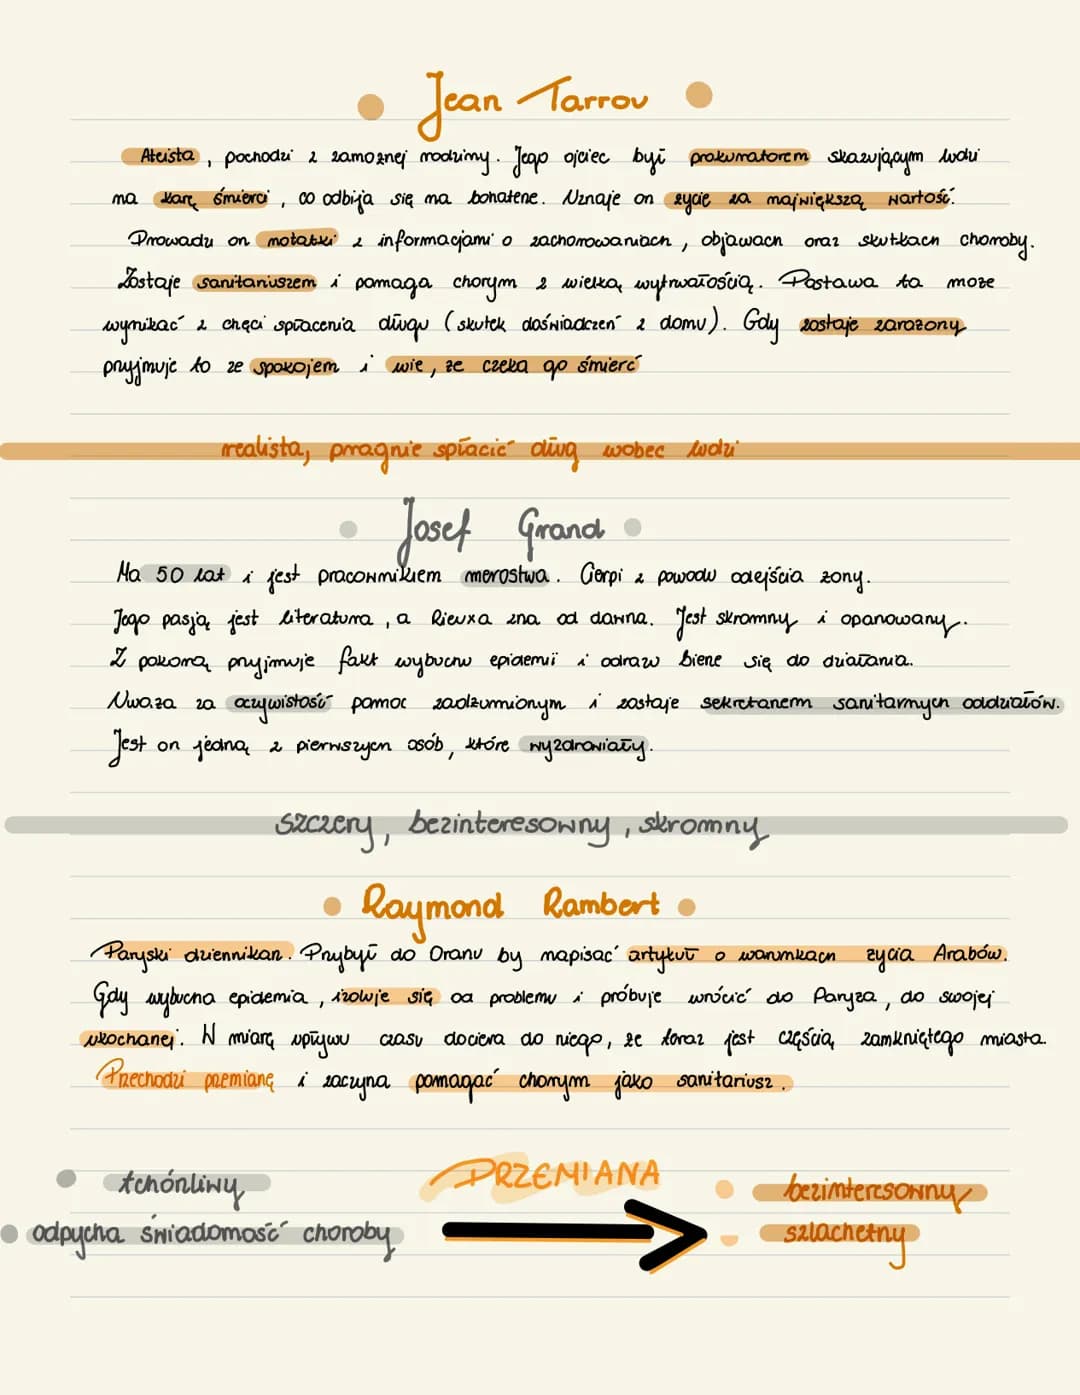 Jean Tarrou
Ateista, pochodzi z zamożnej rodziny. Jego ojciec był prokuratorem skazującym ludzi
na karę śmierci, co odbija się na bohaterze. Uznaje on życie za największą wartość.
Prowadzi on notatki z informacjami o zachorowaniach, objawach oraz skutkach choroby.
Zostaje sanitariuszem i pomaga chorym z wielką wytrwałością. Postawa ta może
wynikać z chęci spłacenia długu (skutek doświadczeń z domu). Gdy zostaje zarażony
przyjmuje to ze spokojem i wie, że czeka go śmierć
realista, pragnie spłacić dług wobec ludzi
Josef Grand
Ma 50 lat i jest pracownikiem merostwa. Cierpi z powodu odejścia żony.
Jego pasją jest literatura, a Rieuxa zna od dawna. Jest skromny i opanowany.
Z pokorą przyjmuje fakt wybuchu epidemii i odrazu bierze się do działania.
Uważa za oczywistość pomoc zadżumionym i zostaje sekretarzem sanitarnych oddziałów.
Jest on jedną z pierwszych osób, które wyzdrowiały.
szczery, bezinteresowny, skromny
Raymond Rambert
Paryski dziennikarz. Przybył do Oranu by napisać artykuł o warunkach życia Arabów.
Gdy wybucha epidemia, izoluje się od problemu i próbuje wrócić do Paryża, do swojej
ukochanej. W miarę upływu czasu dociera do niego, że teraz jest częścią zamkniętego miasta.
Przechodzi przemianę i zaczyna pomagać chorym jako sanitariusz.
PRZEMIANA
tchórzliwy
bezinteresowny
odpycha świadomość choroby
szlachetny